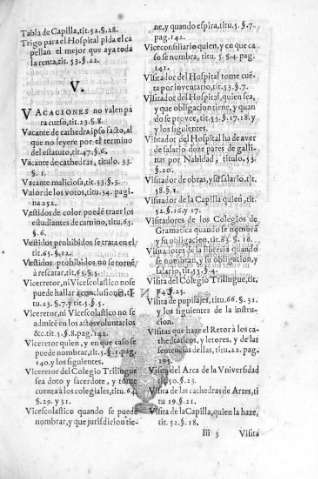 Tabla de Capilla, tit. 52. §. 28.
Trigo para el Hospital pida el ca
pellan el mejor que aya toda
la renta, tit. 53. §. 22.
V.
VACACIONES no valen pa
ra curso, tit. 23. §. 8.
Vacante de cathedra ipso facto, al
que no leyere por el termino
del estatuto, tit. 47. §. 6.
Vacante de cathedras, titulo. 33.
§. 1.
Vacante maliciosa, tit. 33. §. 5.
Valor de los votos, titu. 34. pagi
na 252.
Vestidos de color puede traer los
estudiantes de camino, titu. 63.
§. 6.
Vestidos prohibidos se traten el
tit. 65. §. 12.
Vestidos prohibidos no se
rescatar, tit. 65. §. 5.
Vicerretor, ni Vicescolastico no se
puede hallar a conclusiones, ti
tu. 23. §. 7. y tit. 5. §. 5.
Vicerretor, ni Vicescolastico no se
admite en los actos voluntarios
&c. tit. 3. §. 8. pag. 142.
Vicerretor quien, y en que caso se
puede nombrar, tit. 3. §. 5. pag.
140. y los siguientes.
Vicerretor del Colegio Trilingue
sea doto y sacerdote, y tome
cuenta a los colegiales, titu. 6
§. 29. y 31.
Vicescolastico quando se puede
nombrar, y que jurisdicion tie-
ne, y quando espira, titu. 5. §. 7.
pag. 142.
Viceconsiliario quien, y en que ca
so se nombra, titu. 5. §. 4. pagi.
142.
Visitador del Hospital tome cue
ta por inventario, tit. 53. §. 7.
Visitador del Hospital, quien sea,
y que obligacion tiene, y quan
do se provee, tit. 53. §. 17. 18. y
y los siguientes.
Visitador del Hospital ha de aver
de salario doze pares de galli-
nas por Nabidad, titulo. 53.
§. 20.
Visitador de obras, y su salario, tit.
58. §. 1.
Visitador de la Capilla quien, tit.
52. §. 16. y 17.
Visitadores de los Colegios de
Gramatica quando se nombra
y su obligacion, tit. 63. §. 16.
Visitadores de la libreria quando
se nombran, y su obligacion, y
salario, tit. 53. §. 4.
Visita del Colegio Trilingue, tit.
Visita de pupilajes, titu. 66. §. 31.
y los siguientes de la instru-
cion.
Visitas que haze el Retor a los ca
thedraticos, y letores, y de las
sentencias dellas, titu. 22. pag.
Visita del Arca de la Universidad
Visita de las cathedras de Artes, ti
tu 19. §. 21.
Visita de la Capilla, quien la haze,
tit. 52. §. 18.
Iii 3 Visita